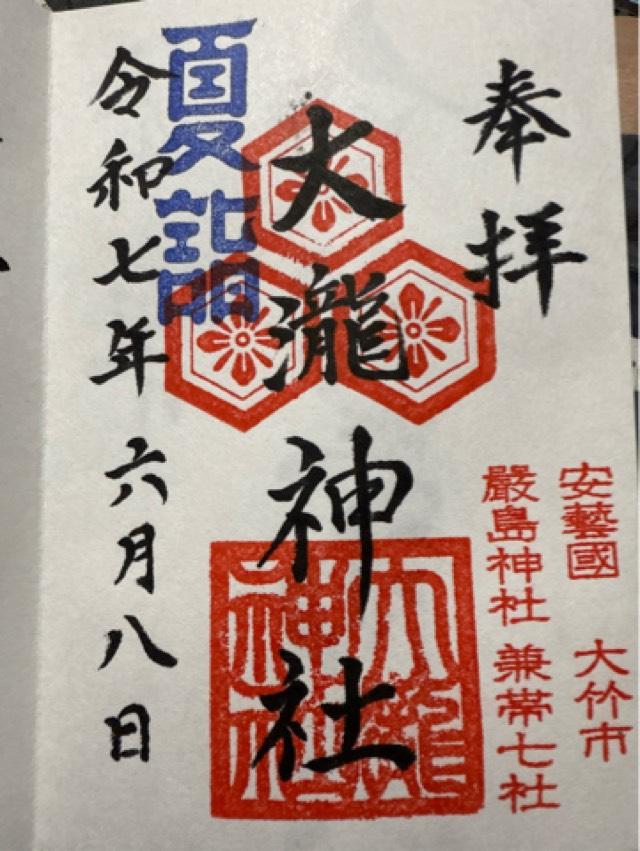 奉拝
安藝國 大竹市
嚴島神社 兼帯七社
大瀧神社
大瀧神社
夏詣
令和七年六月八日